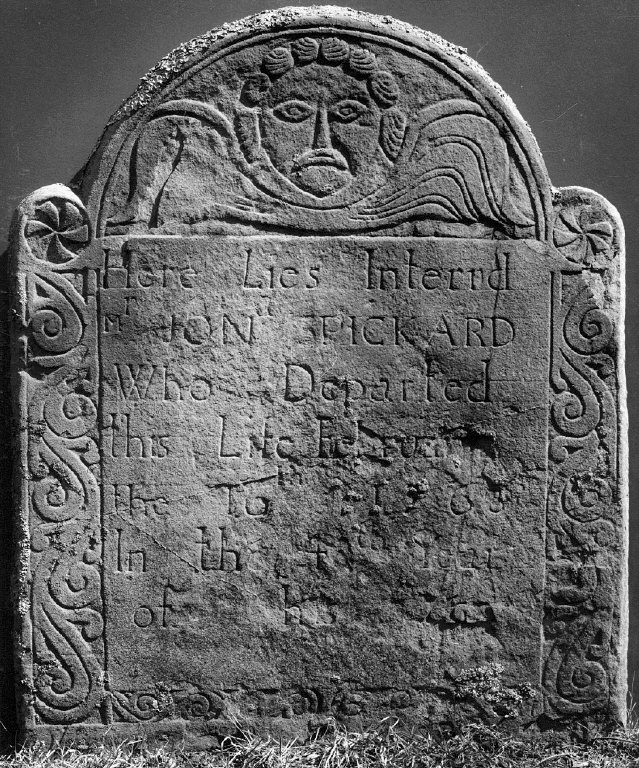 Here Lies Interrd
Mr JON PICKARD
Who Departed
this Life February
the
In the Year
of his age